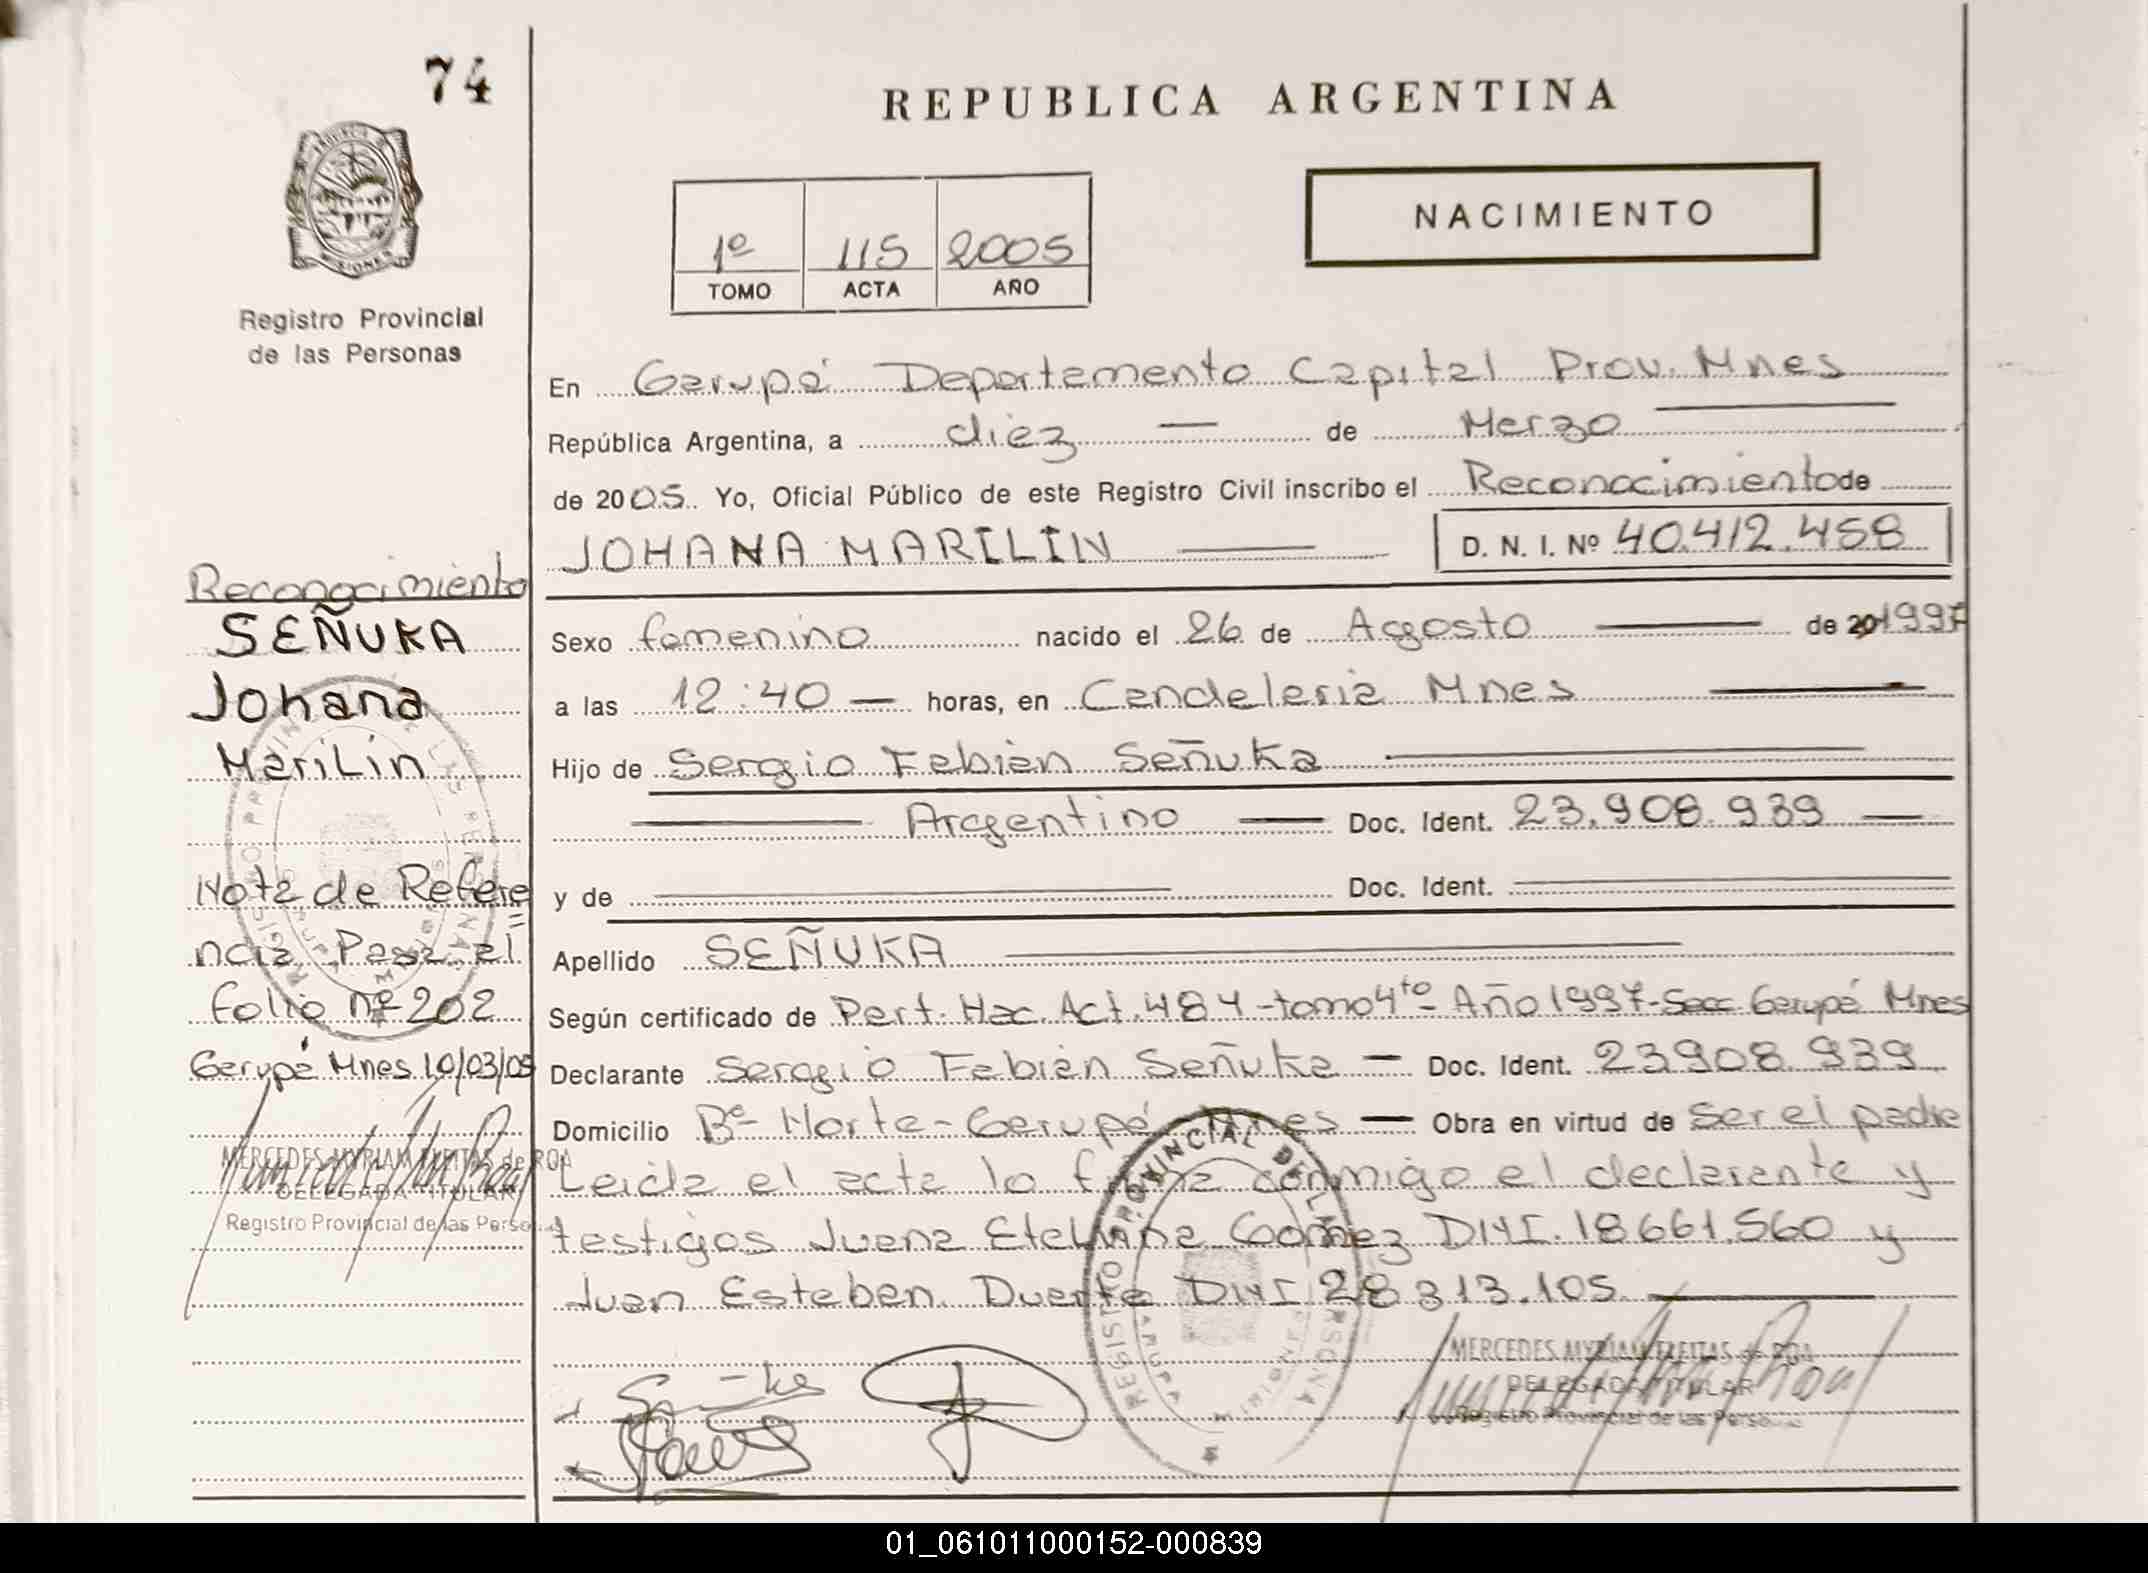 74
REPUBLICA ARGENTINA
NACIMIENTO
1º 115 2005
TOMO ACTA AÑO
Registro Provincial
de las Personas
En Garupá Departamento Capital Prov. Mnes
República Argentina, a diez de Marzo
de 2005. Yo, Oficial Público de este Registro Civil inscribo el Reconocimiento de
JOHANA MARILIN D. N. I. Nº 40.412.458
Sexo femenino nacido el 26 de Agosto de 20 1997
a las 12:40 horas, en Candelaria Mnes
Hijo de Sergio Fabián Señuka
Argentino Doc. Ident. 23.908.939
y de Doc. Ident.
Apellido SEÑUKA
Según certificado de Part. Nac. Act. 484 - tomo 4to - Año 1997 - Secc Garupá Mnes
Declarante Sergio Fabián Señuka Doc. Ident. 23908.939
Domicilio Bº Norte - Garupá Mnes Obra en virtud de Ser el padre
Leida el acta la firma conmigo el declarante y
testigos Juana Etelvina Gomez DNI. 18661.560 y
Juan Esteban Duarte DNI 28313.105.
Reconocimiento
SEÑUKA
Johana
Marilin
Nota de Refere
ncia Pasa al
folio nº 202
Garupá Mnes 10/03/05
MERCEDES MYRIAM FREITAS de ROA
DELEGADA TITULAR
Registro Provincial de las Perso
MERCEDES MYRIAM FREITAS de ROA
DELEGADA TITULAR
Registro Provincial de las Perso
REGISTRO PROVINCIAL DE LAS PERSONAS
GARUPA
MISIONES
01_061011000152-000839